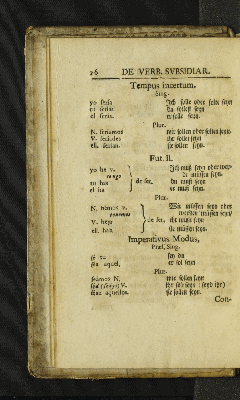 26 DE VERB. SVBSIDIAR.
Tempus incertum.
Sing.
yo seria Ich solle oder solte seyn
tu serias du sollest seyn
el seria. er solle seyn.
Plur.
N. seriamos wir sollen oder solten seyn
V. seriades ihr sollet seyn
ell. serian. sie sollen seyn.
Fut. II.
yo he v. Ich muß seyn oder wer-
tengo de müssen seyn
tu has de ser. du must seyn
el ha er muß seyn.
Plur.
N. hemos v. Wir müssen seyn oder
tenemos werden müssen seyn
V. heys de ser. ihr müst seyn
ell. han sie müssen seyn.
Imperativus Modus,
Præs. Sing.
sé tu sey du
sea aquel. er sol seyn
Plur.
seamos N. wir sollen seyn
sed V. ihr solt seyn (seyd ihr)
sean aquellos. sie sollen seyn.
Con-